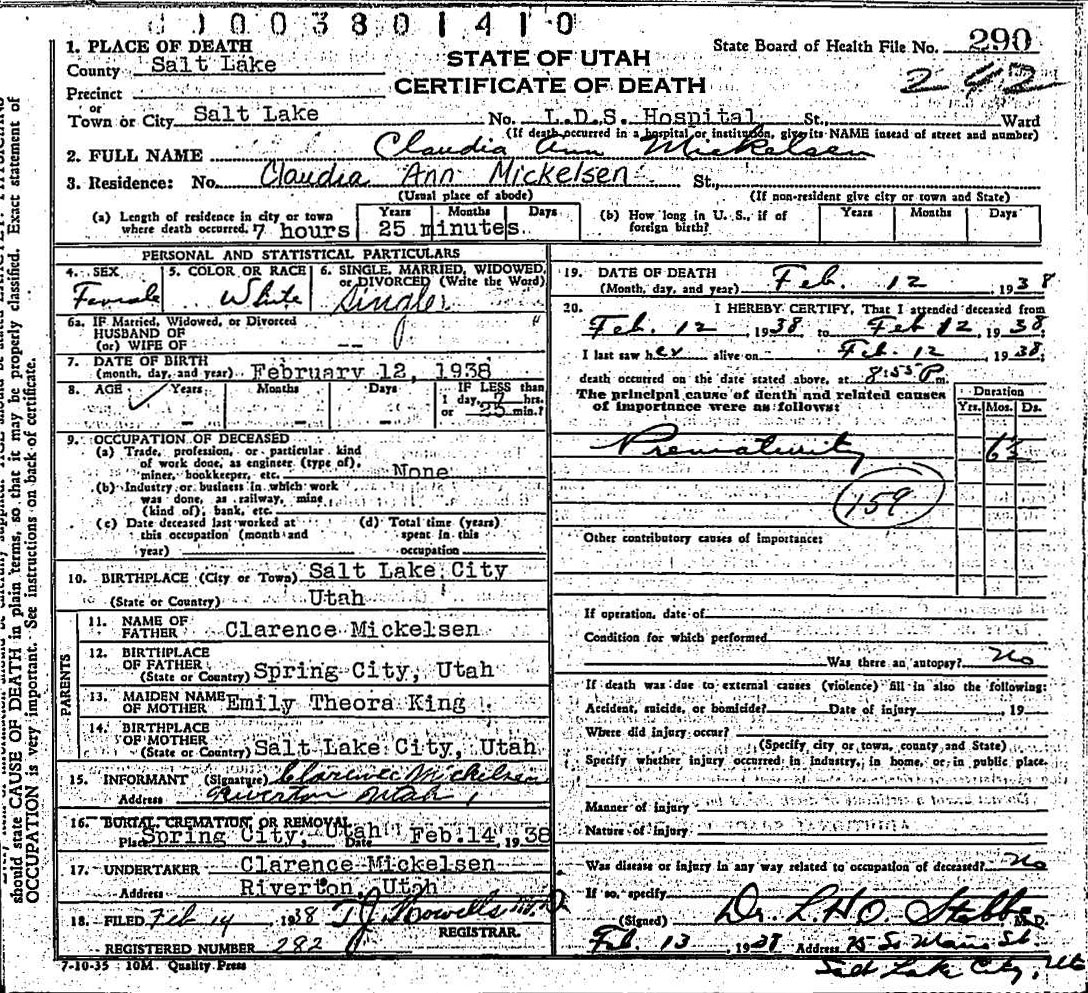 1003801410
1. PLACE OF DEATH
STATE OF UTAH
State Board of Health File No. 290
County Salt Lake
CERTIFICATE OF DEATH
242
Precinct
or
Town or City Salt Lake No. L.D.S. Hospital St., Ward
(If death occurred in a hospital or institution, give its NAME instead of street and number)
2. FULL NAME Claudia Ann Mickelsen
3. Residence: No. Claudia Ann Mickelsen St.,
(Usual place of abode) (If non-resident give city or town and State)
(a) Length of residence in city or town where death occurred. 7 hours
Years Months Days
25 minutes
(b) How long in U. S., if of foreign birth?
Years Months Days
PERSONAL AND STATISTICAL PARTICULARS
4. SEX
Female
5. COLOR OR RACE
White
6. SINGLE, MARRIED, WIDOWED,
or DIVORCED (Write the Word)
Single
6a. IF Married, Widowed, or Divorced
HUSBAND OF
(or) WIFE OF -- "
7. DATE OF BIRTH
(month, day, and year) February 12, 1938
8. AGE Years Months Days
IF LESS than
1 day, 7 hrs.
or 25 min.?
9. OCCUPATION OF DECEASED
(a) Trade, profession, or particular kind
of work done, as engineer (type of),
miner, bookkeeper, etc. None
(b) Industry or business in which work
was done, as railway, mine
(kind of), bank, etc.
(c) Date deceased last worked at
this occupation (month and
year)
(d) Total time (years)
spent in this
occupation
10. BIRTHPLACE (City or Town) Salt Lake City
(State or Country) Utah
PARENTS
11. NAME OF
FATHER Clarence Mickelsen
12. BIRTHPLACE
OF FATHER
(State or Country) Spring City, Utah
13. MAIDEN NAME
OF MOTHER Emily Theora King
14. BIRTHPLACE
OF MOTHER
(State or Country) Salt Lake City, Utah
15. INFORMANT (Signature) Clarence Mickelsen
Address Riverton Utah
16. BURIAL, CREMATION OR REMOVAL
Place Spring City, Utah Date Feb. 14, 1938
17. UNDERTAKER Clarence Mickelsen
Address Riverton, Utah
18. FILED Feb 14 1938 T J Howells M.D.
REGISTRAR.
REGISTERED NUMBER 282
7-10-35 10M. Quality Press
19. DATE OF DEATH
(Month, day, and year) Feb. 12, 1938
20. I HEREBY CERTIFY, That I attended deceased from
Feb. 12, 1938 to Feb 12, 1938
I last saw her alive on Feb. 12 1938;
death occurred on the date stated above, at 8:55 P.m.
The principal cause of death and related causes
of importance were as follows:
Duration
Yrs. Mos. Ds.
Prematurity
159
Other contributory causes of importance:
If operation, date of
Condition for which performed
Was there an autopsy? No
If death was due to external causes (violence) fill in also the following:
Accident, suicide, or homicide? Date of injury , 19
Where did injury occur?
(Specify city or town, county and State)
Specify whether injury occurred in industry, in home, or in public place.
Manner of injury
Nature of injury
Was disease or injury in any way related to occupation of deceased? No
If so, specify
(Signed) Dr. L.H.O. Stobbe M.D.
Feb. 13 1938 Address 75 So Main St.
Salt Lake City, Ut
should state CAUSE OF DEATH in plain terms, so that it may be properly classified. Exact statement of
OCCUPATION is very important. See instructions on back of certificate.